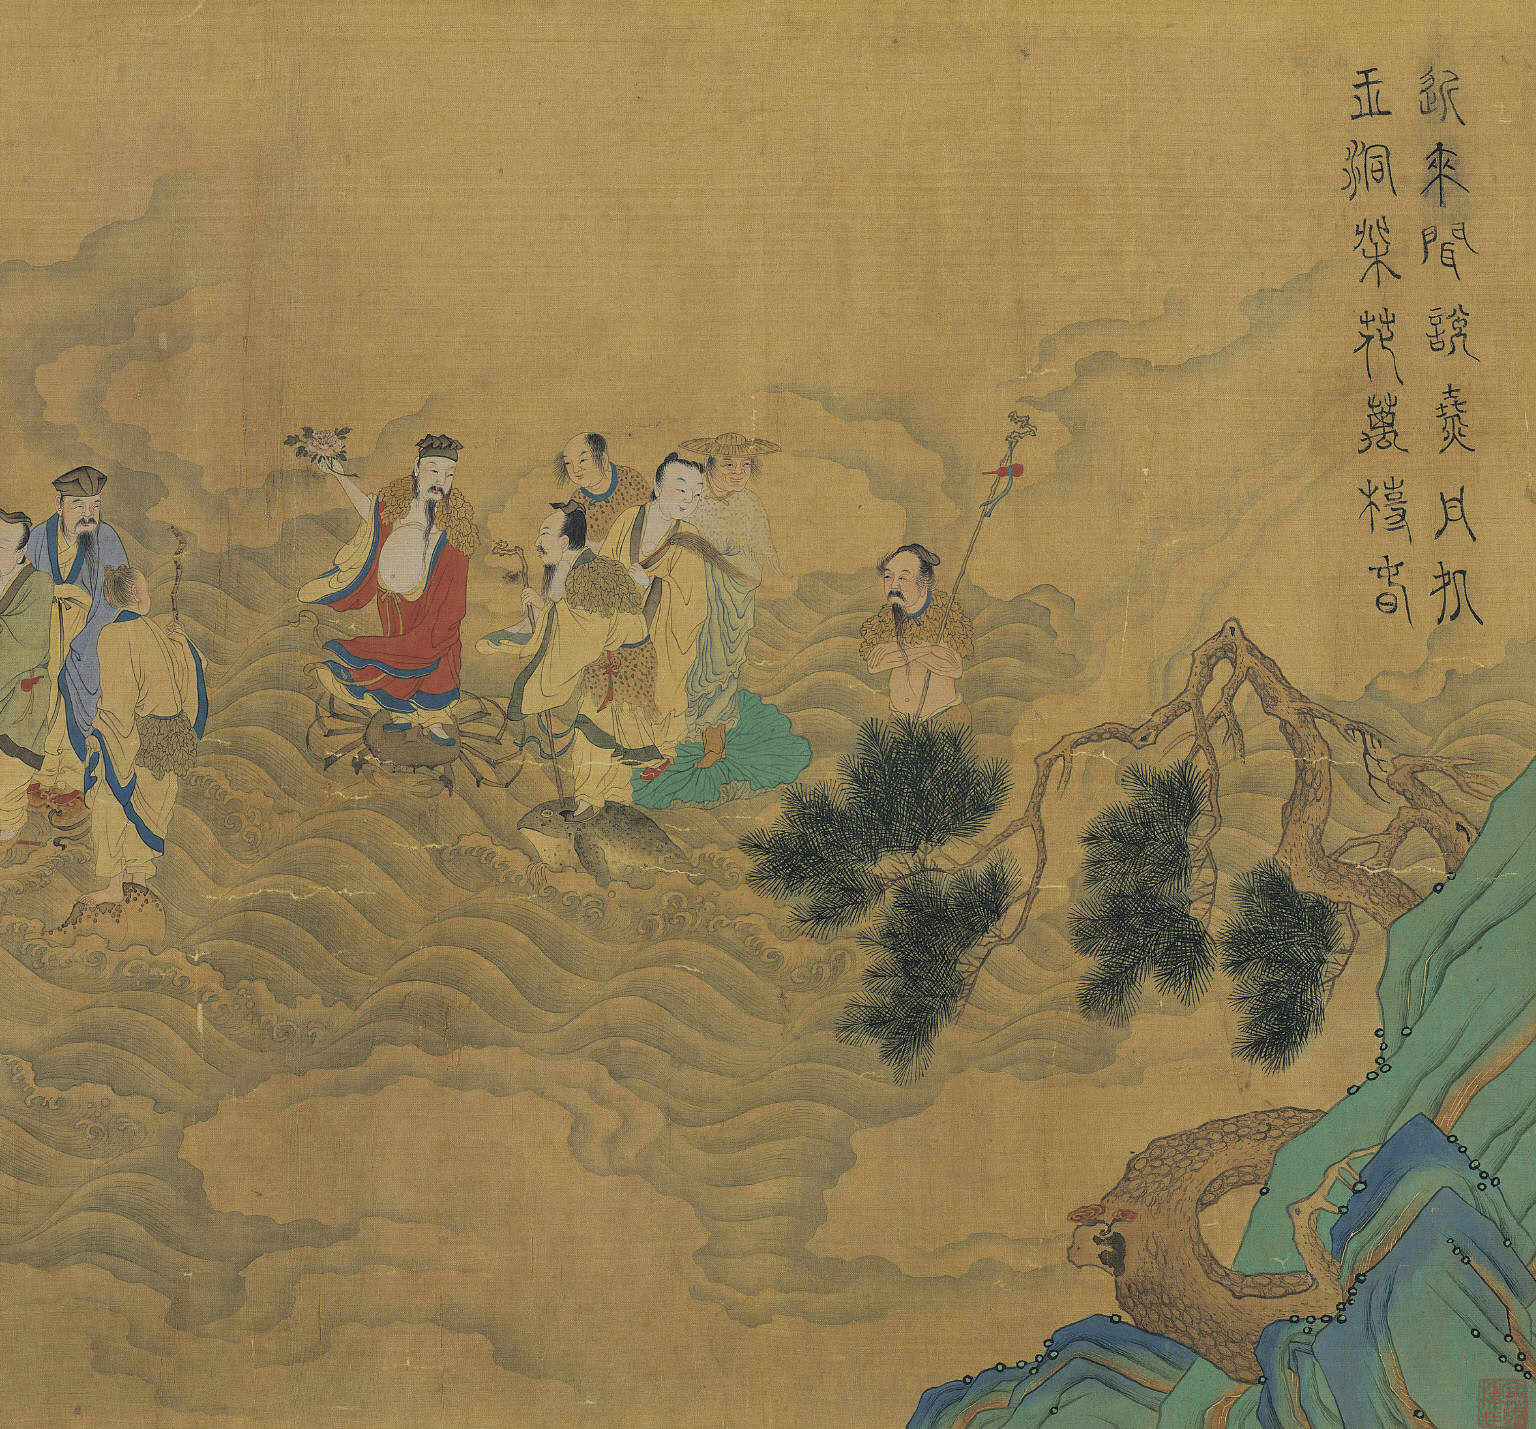 近來聞說燒丹處
玉洞桃花萬樹春